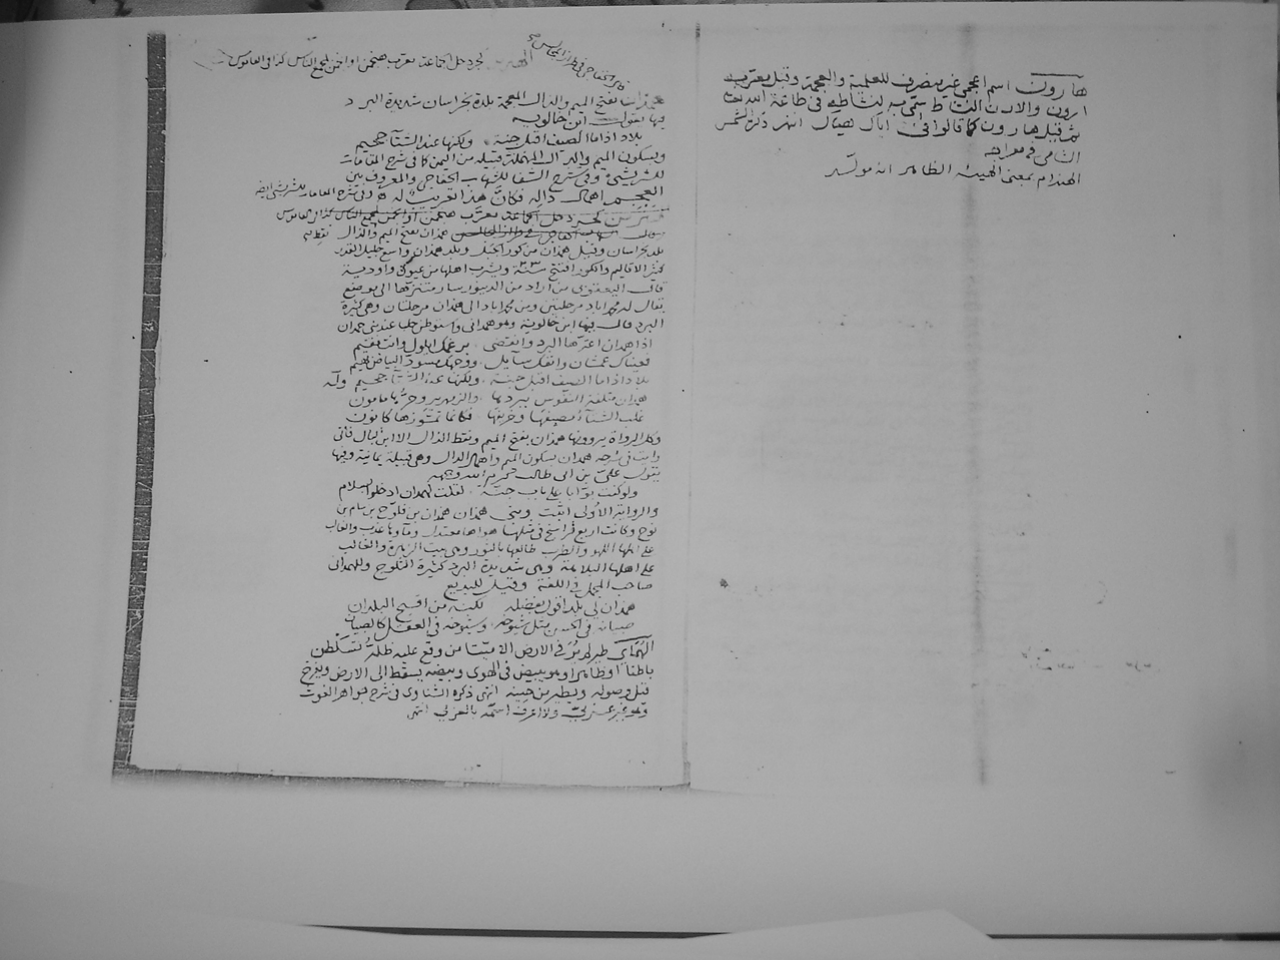 هارون اسم اعجمي غير منصرف للعلمية والعجمة وقيل معرب
ارون والارن النشاط سمى به لنشاطه في طاعة الله
ثم قيل هارون كما قالوا في اياك هياك انتهى ذكره الشمس
الشامي في معراجه
الهندام بمعنى الهيئة الظاهر انه مولد
لجردحل الجماعة معرب هنجمن او انجمن لمجمع الناس كذا في القاموس
بفتح الميم والذال المعجمة بلدة بخراسان شديدة البرد
فيها يقول ابن خالويه
بلاد اذا ما الصيف اقبل جنة ولكنها عند الشتاء جحيم
وبسكون الميم والدال المهملة قبيلة من اليمن كما في شرح المقامات
للشريشي وفي شرح الشفا للشهاب الخفاجي والمعروف بين
العجم اهمال داله فكان هذا تعريب له وفي شرح المقامات للشريشي ايضا
لجردحل الجماعة معرب هنجمن او انجمن لمجمع الناس كذا في القاموس
همذان بفتح الميم والذال
بلد بخراسان وقيل همذان من كور الجبل وبلد همذان واسع جليل القدر
كثير الاقاليم والكور افتتح سنة ٢٣ ويشرب اهلها من عيون واودية
قال اليعقوبي من اراد من الدينور سار متنزقها الى موضع
يقال له محمد اباد مرحلتين ومن محمد اباد الى همذان مرحلتان وهي كثيرة
البرد قال فيها ابن خالويه وهو همذاني واستوطن حلب عند بني حمدان
اذا همدان اعترها البرد وانقضى برغمك ايلول وانت مقيم
فعيناك عمشان وانفك سايل ووجهك مسود البياض بهيم
بلاد اذا ما الصيف اقبل جنة ولكنها عند الشتاء جحيم وله
همذان متلفة النفوس ببردها والزمهرير وحرها مامون
غلب الشتاء مصيفها وخريفها فكانما تموزها كانون
وكل الرواة يروونها همذان بفتح الميم ونقط الذال الا ابن
همدان بسكون الميم واهمال الدال وهي قبيلة يمانية وفيها
يقول علي بن ابي طالب كرم الله وجهه
ولو كنت بوابا على باب جنة لقلت لهمدان ادخلوا بسلام
والرواية الاولى اثبت وبنى همذان همذان بن فلوح بن سام بن
نوح وكانت اربع فراسخ في مثلها هواها معتدل وماؤها عذب والغالب
على اهلها اللهو والطرب طالعها بالثور وهي بيت الزهرة والغالب
على اهلها البلاهة وهي شديدة البرد كثيرة الثلوج وللهمداني
صاحب المجمل في اللغة وقيل للبديع
همذان لي بلد اقول بفضله لكنه من اقبح البلدان
صبيانه في القبح مثل شيوخه وشيوخه في العقل كالصبيان
الهماي طير لم ير في الارض الا ميتا من وقع عليه ظله يتسلطن
باطنا او ظاهرا وهو يبيض في الهوى وبيضه يسقط الى الارض ويفرخ
قبل وصوله ويطير من حينه انتهى ذكره الشناوي في شرح جواهر الغوث
وهو غير عربي ولا اعرف اسمه بالعربي انتهى